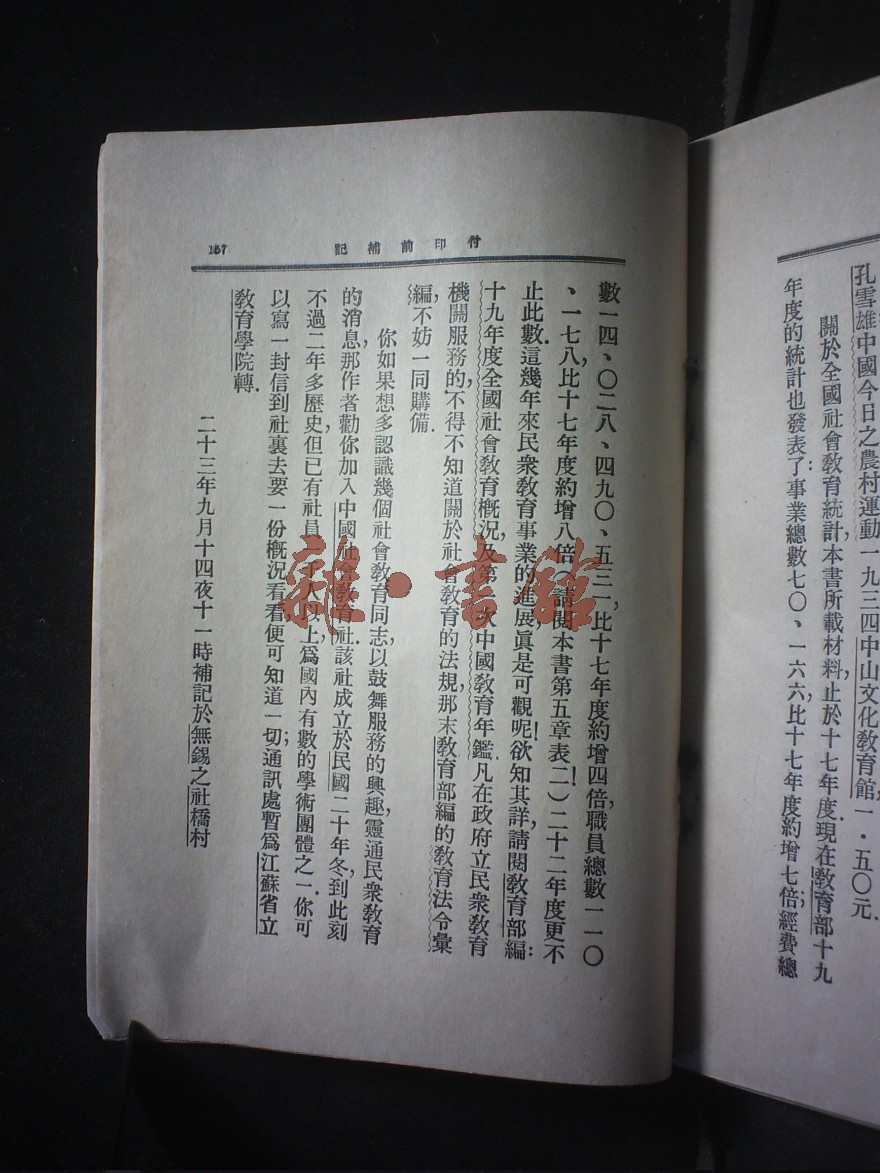 孔雪雄中國今日之農村運動一九三四中山文化教育館,一·五〇元.
關於全國社會教育統計,本書所載材料,止於十七年度.現在教育部十九
年度的統計也發表了:事業總數七〇、一六六,比十七年度約增七倍;經費總
付印前補記
157
數一四、〇二八、四九〇、五三一,比十七年度約增四倍,職員總數一一〇
、一七八,比十七年度約增八倍!請閱本書第五章表(二)二十二年度更不
止此數.這幾年來民衆教育事業的進展,真是可觀呢!欲知其詳,請閱教育部編:
十九年度全國社會教育概況及第一次中國教育年鑑.凡在政府立民衆教育
機關服務的,不得不知道關於社會教育的法規,那末教育部編的教育法令彙
編,不妨一同購備.
你如果想多認識幾個社會教育同志,以鼓舞服務的興趣,靈通民衆教育
的消息,那作者勸你加入中國社會教育社.該社成立於民國二十年冬,到此刻
不過二年多歷史,但已有社員千人以上,爲國內有數的學術團體之一.你可
以寫一封信到社裏去要一份概況看看,便可知道一切;通訊處暫爲江蘇省立
教育學院轉.
二十三年九月十四夜十一時補記於無錫之社橋村
雜·書館